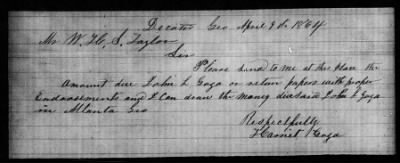 Decatur Geo April 9th 1864
Mr W. H, S, Taylor
Sir
Please send to me at this place the
Amount due John L Goza or return papers with proper
Endorsements and I can draw the money due said John L Goza
in Atlanta Geo
Respectfully
Harriet Goza